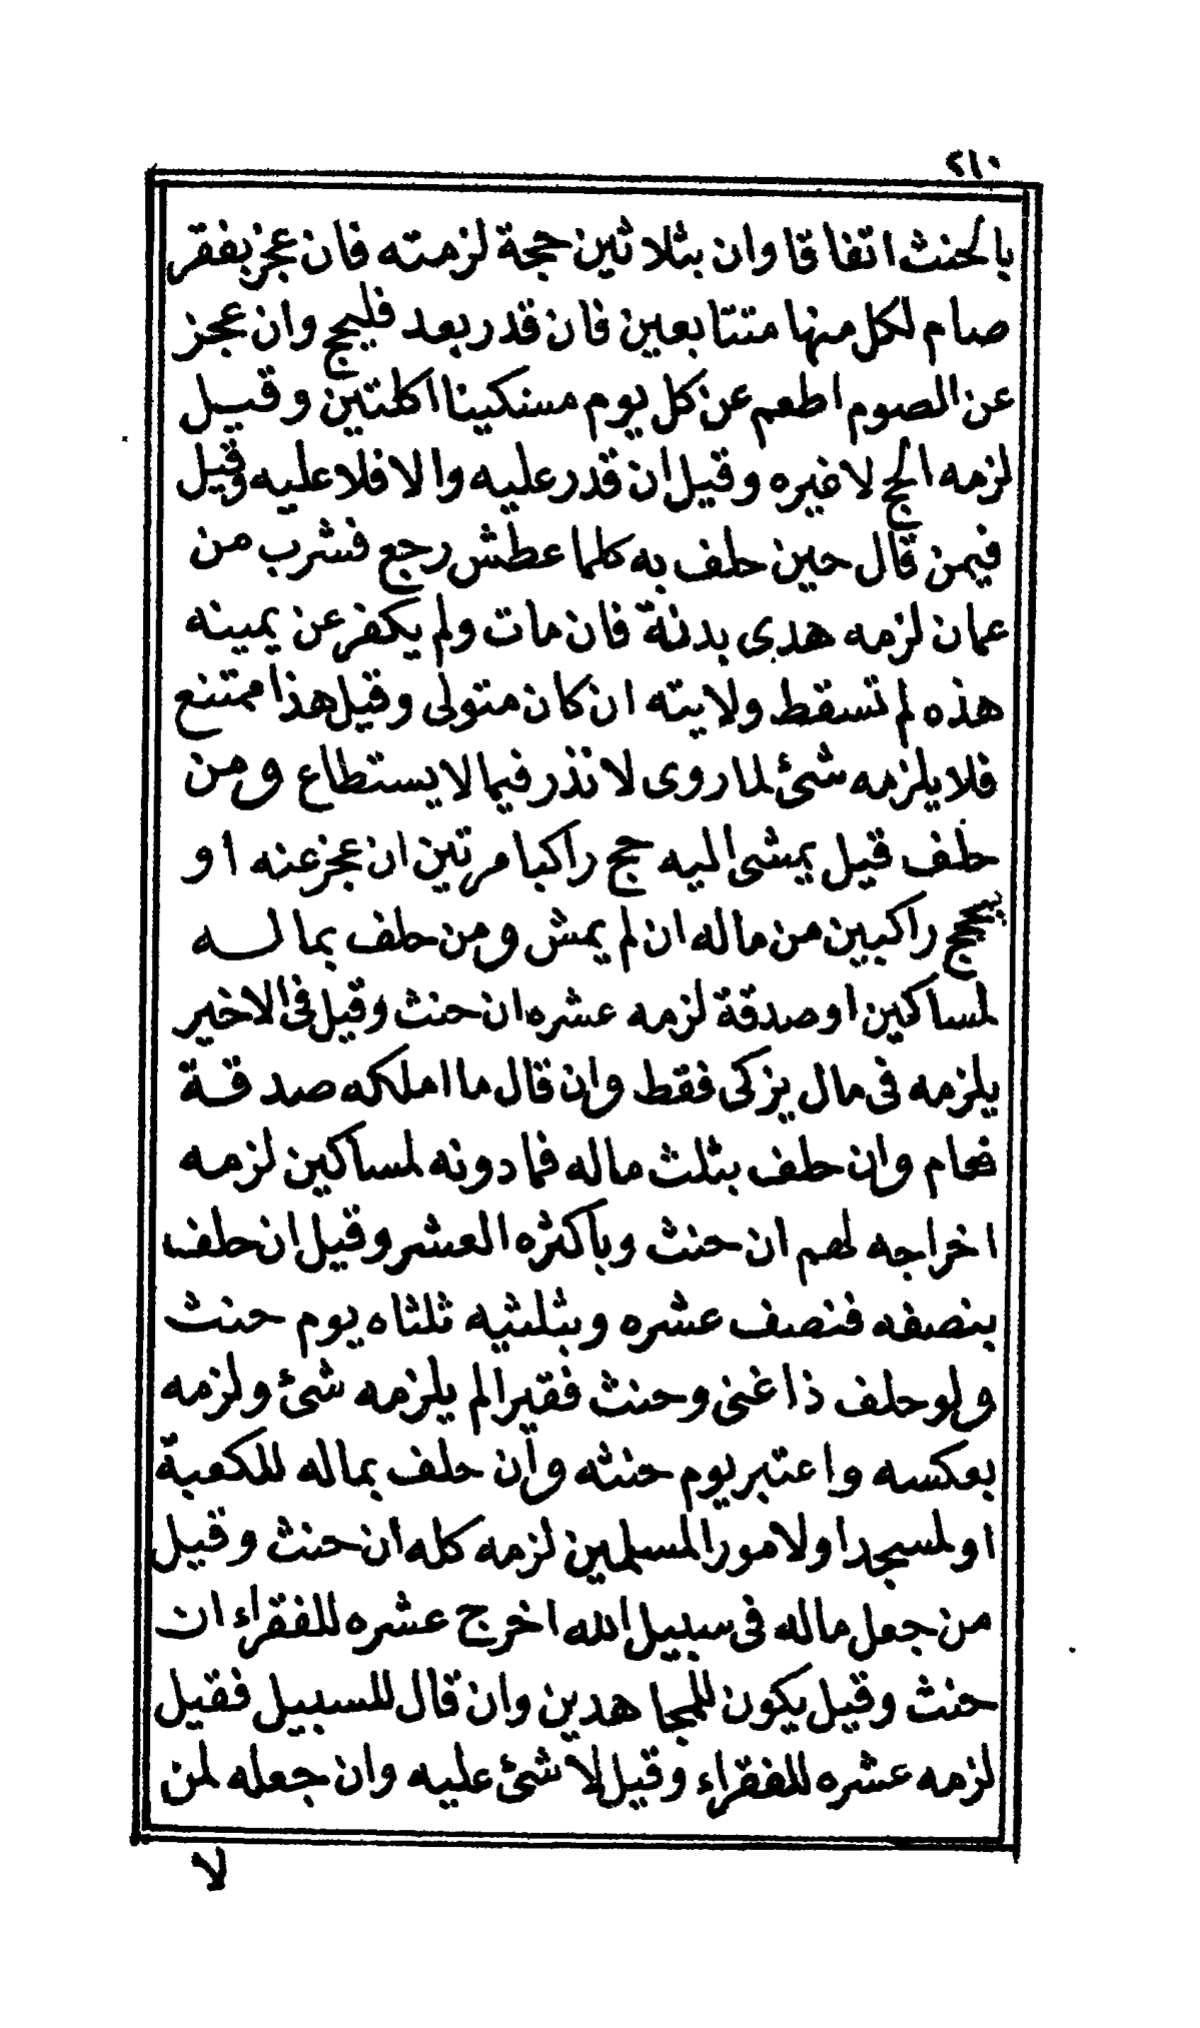 ٢١٠
بالحنث اتفاقا وان بثلاثين حجة لزمته فان عجز بفقر
صام لكل منها متتابعين فان قدر بعد فليحج وان عجز
عن الصوم اطعم عن كل يوم مسكينا اكلتين وقيل
لزمه الحج لا غيره وقيل ان قدر عليه والا فلا عليه وقيل
فيمن قال حين حلف به كلما عطش رجع فشرب من
عمان لزمه هدى بدنة فان مات ولم يكفر عن يمينه
هذه لم تسقط ولايته ان كان متولى وقيل هذا ممتنع
فلا يلزمه شئ لما روى لا نذر فيما لا يستطاع ومن
حلف قيل يمشى اليه حج راكبا مرتين ان عجز عنه او
يحجج راكبين من ماله ان لم يمش ومن حلف بما لـه
لمساكين او صدقة لزمه عشره ان حنث وقيل فى الاخير
يلزمه فى مال يزكى فقط وان قال ما املكه صدقة
فعام وان حلف بثلث ماله فما دونه لمساكين لزمه
اخراجه لهم ان حنث وباكثره العشر وقيل ان حلف
بنصفه فنصف عشره وبثلثيه ثلثاه يوم حنث
ولو حلف ذا غنى وحنث فقيرا لم يلزمه شئ ولزمه
بعكسه واعتبر يوم حنثه وان حلف بماله للكعبة
او لمسجد او لامور المسلمين لزمه كله ان حنث وقيل
من جعل ماله فى سبيل الله اخرج عشره للفقراء ان
حنث وقيل يكون للمجاهدين وان قال للسبيل فقيل
لزمه عشره للفقراء وقيل لا شئ عليه وان جعله لمن
لا